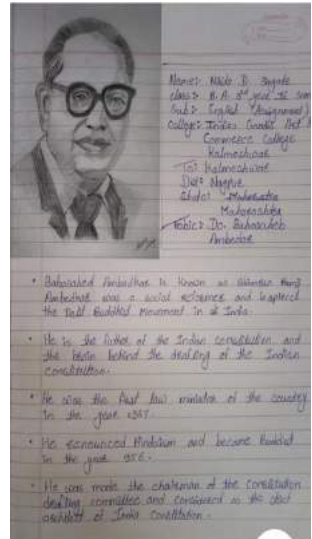 Name:- D.
Class:- B.A. 3rd year
Sub:- English (Assignment)
College:- Indira Gandhi Art &
Commerce College
Kalmeshwar
To: Kalmeshwar
Dist: Nagpur
State: Maharashtra
Maharashtra
Topic: Dr. Babasaheb
Ambedkar
• Babasaheb Ambedkar is known as Bhimrao Ramji
Ambedkar was a social reformer and inspired
the Dalit Buddhist Movement in India.
• He is the father of the Indian constitution and
the brain behind the drafting of the Indian
constitution.
• He was the first law minister of the country
in the year 1947.
• He renounced Hinduism and became Buddhist
in the year 1956.
• He was made the chairman of the constitution
drafting committee and considered as the chief
architect of India Constitution.